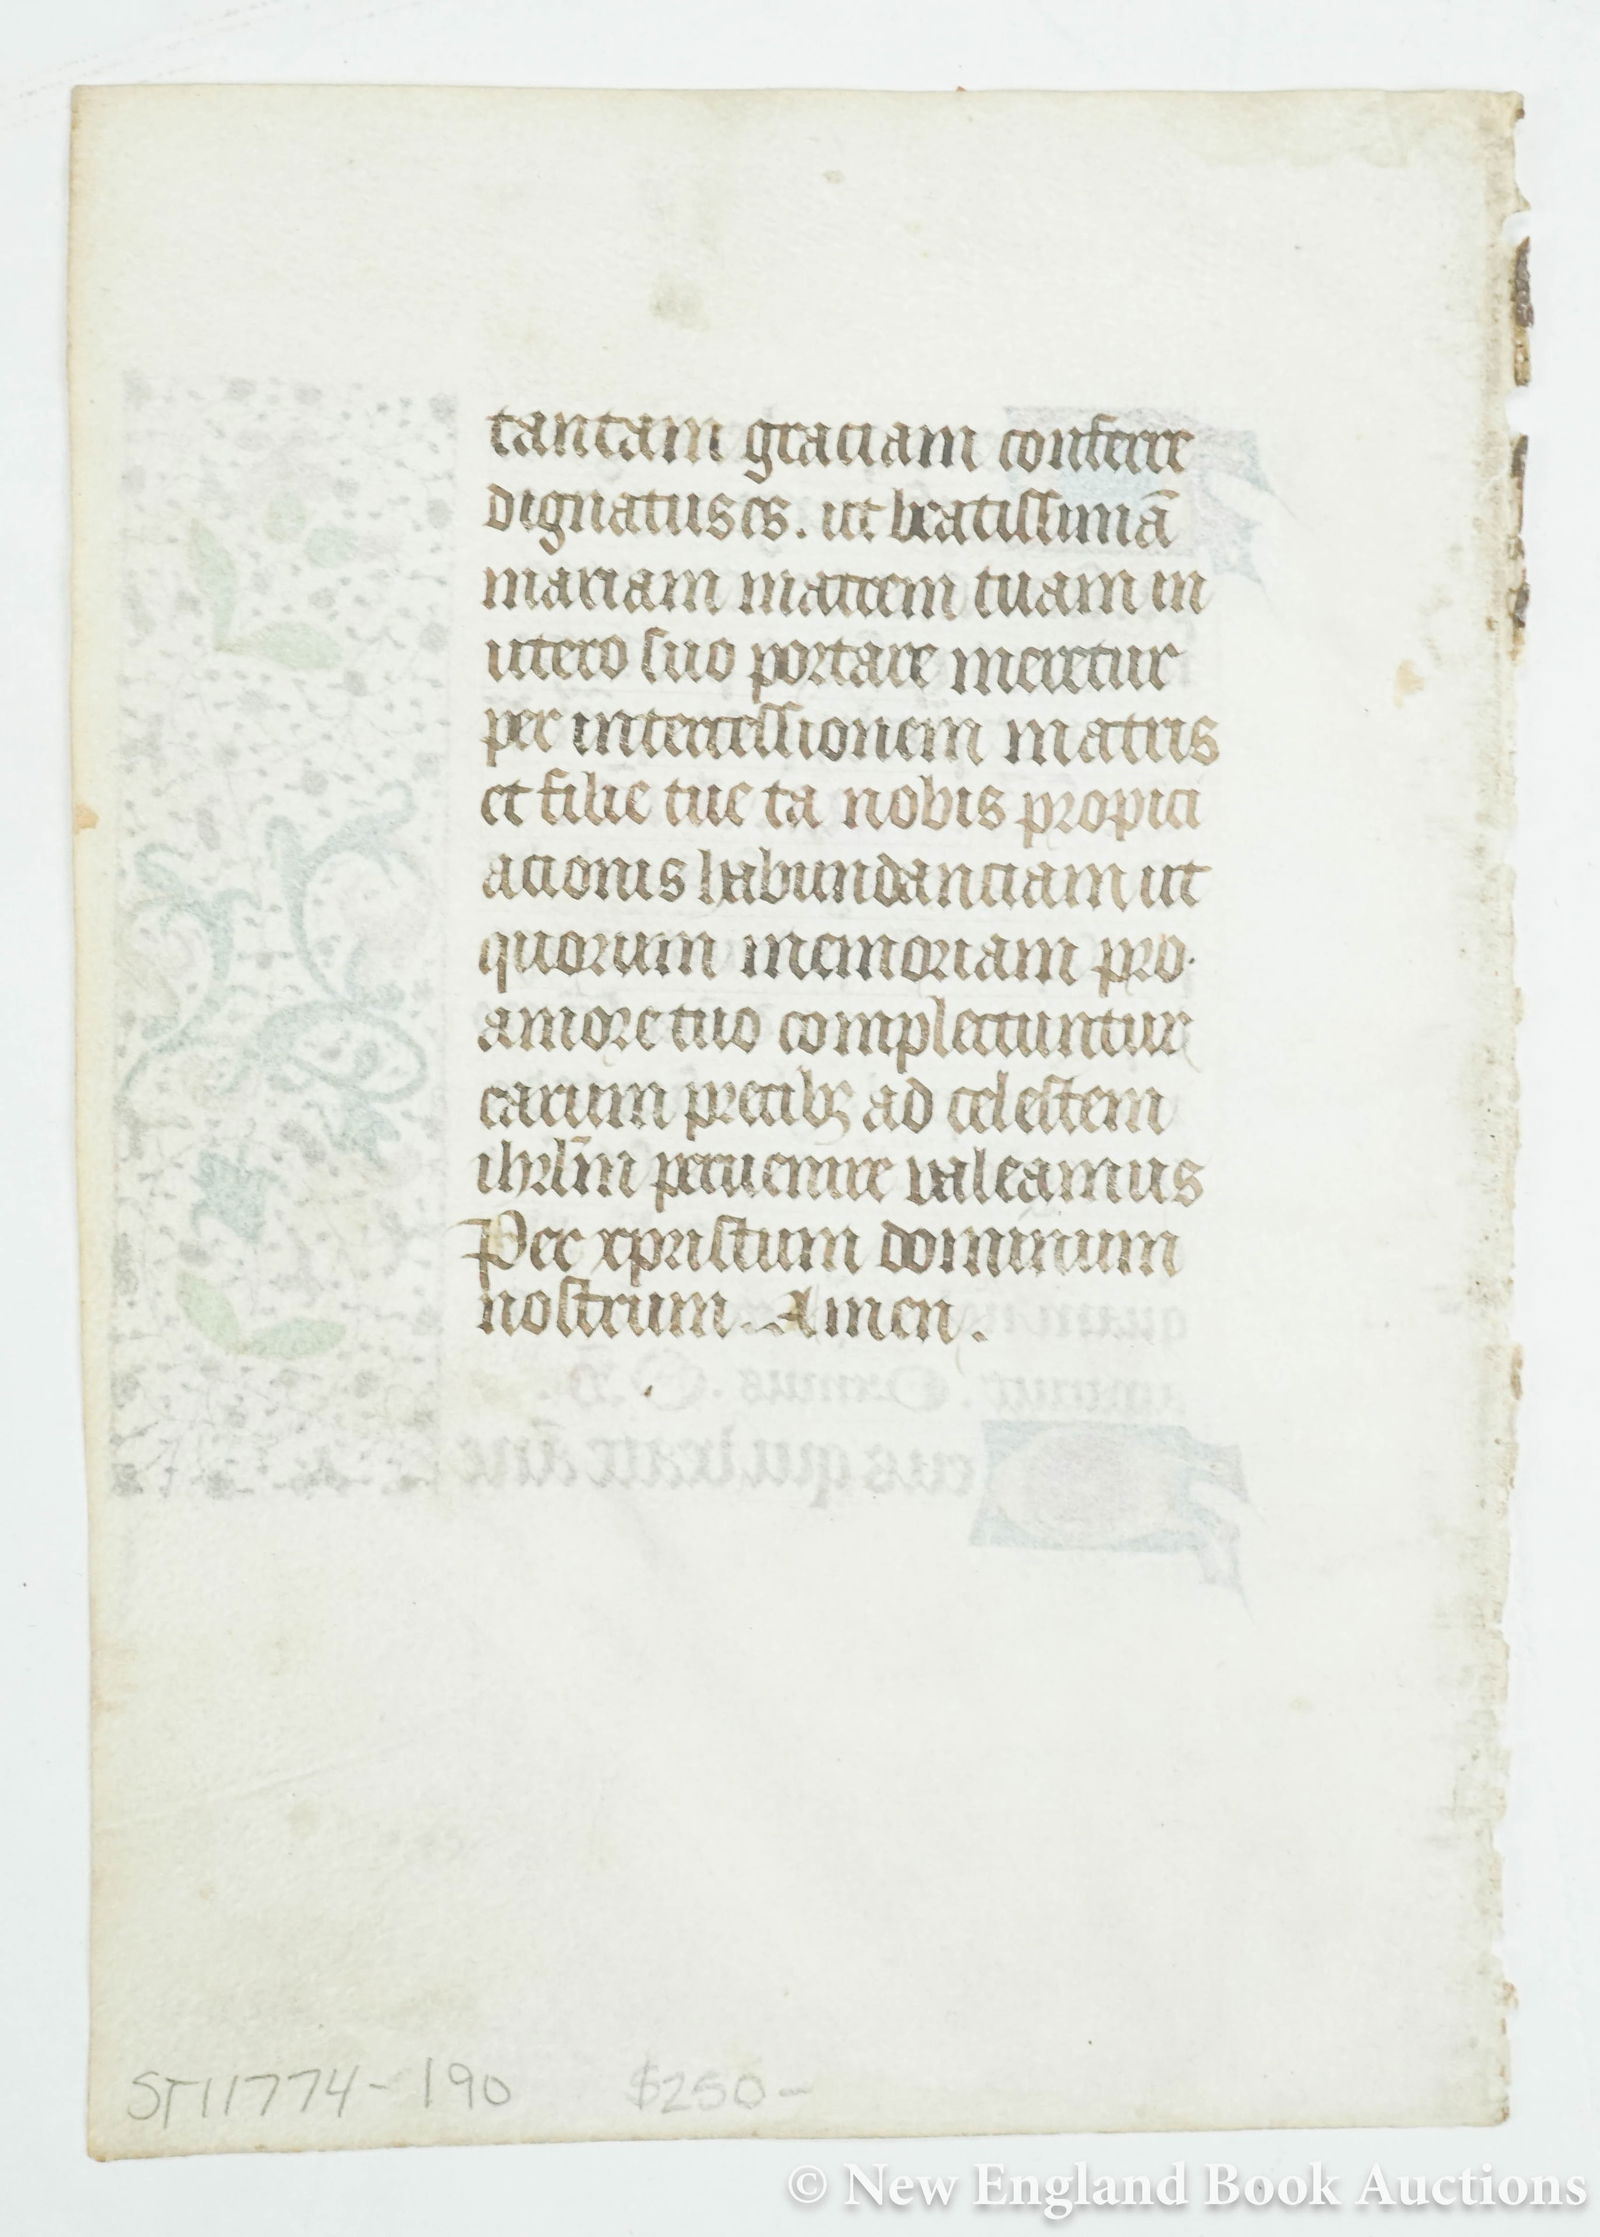 tantam graciam conferre
dignatus es. ut beatissimā
mariam matrem tuam in
utero suo portare meretur
per intercessionem matris
et filie tue ta nobis propici
acionis habundanciam ut
quorum memoriam pro
amore tuo complectuntur
earum precibꝫ ad celestem
ihrl̄m peruenire valeamus
Per xpristum dominum
nostrum. Amen.
ST11774-190 $250-
© New England Book Auctions